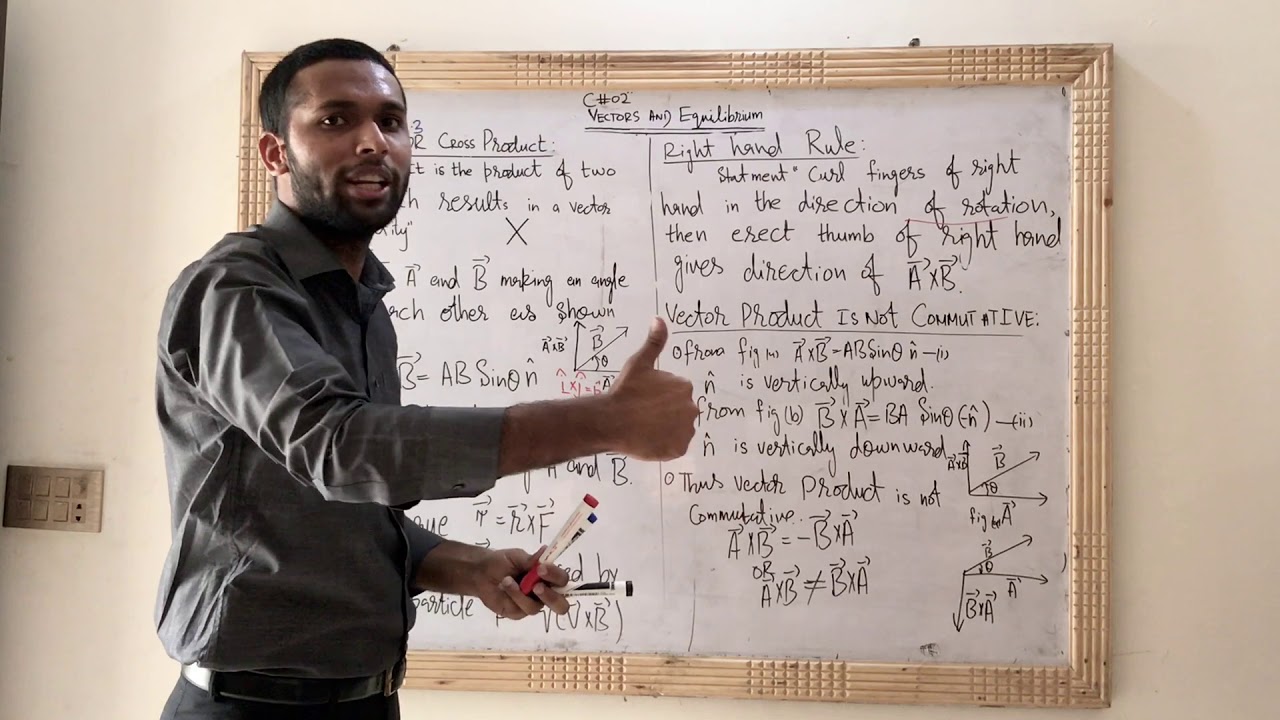 C#02
VECTORS AND Equilibrium
OR Cross Product:
It is the product of two
results in a vector
X
A⃗ and B⃗ making an angle
each other as shown
A⃗xB⃗
B⃗
θ
A⃗
B⃗ = AB Sinθ n̂
A⃗ and B⃗.
= r⃗xF⃗
by
particle
(V⃗xB⃗)
Right hand Rule:
Statment " Curl fingers of right
hand in the direction of rotation,
then erect thumb of right hand
gives direction of A⃗xB⃗"
Vector Product Is Not Commutative:
o From fig (a) A⃗xB⃗ = ABSinθ n̂ —(i)
n̂ is vertically upward.
From fig (b) B⃗xA⃗ = BA Sinθ(-n̂) —(ii)
n̂ is vertically downward
o Thus vector Product is not
Commutative.
A⃗xB⃗ = -B⃗xA⃗
OR
A⃗xB⃗ ≠ B⃗xA⃗
A⃗xB⃗
B⃗
θ
fig (a) A⃗
B⃗
θ
A⃗
B⃗xA⃗